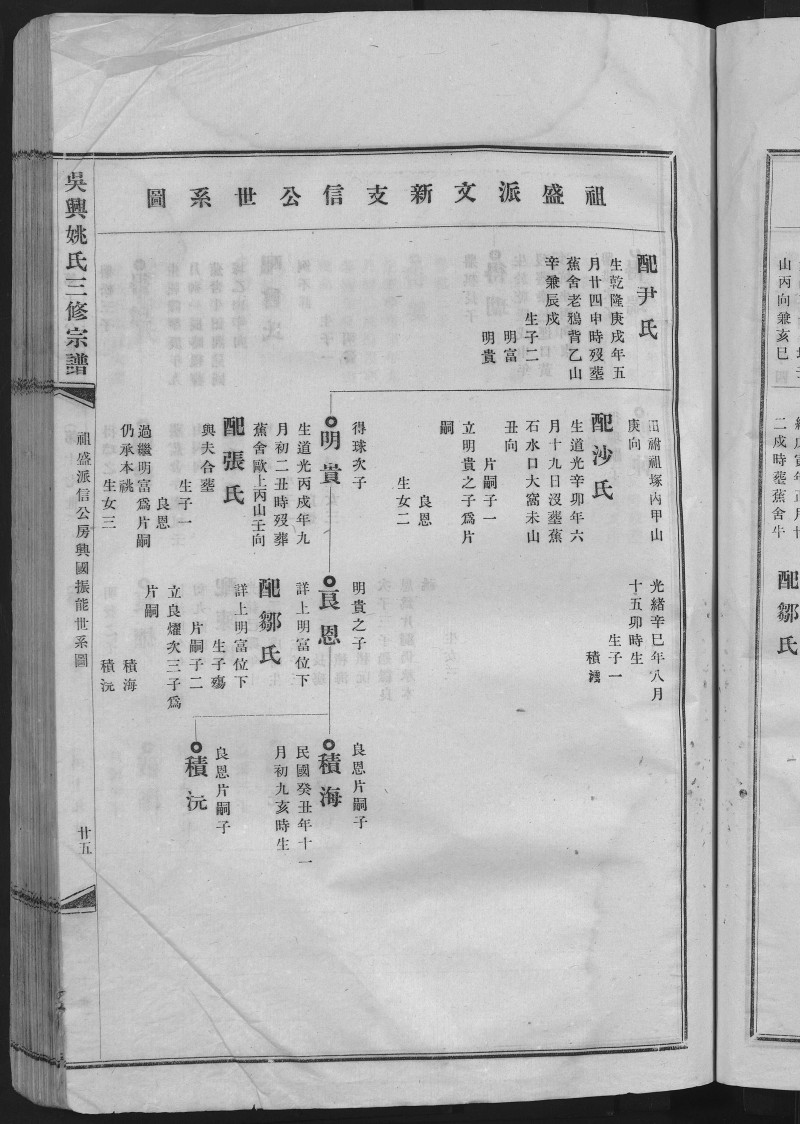 祖盛派文新支信公世系圖
配尹氏
生乾隆庚戌年五
月廿四申時歿塟
蕉舍老鴉背乙山
辛兼辰戍
生子二
明富
明貴
祔祖塚內甲山
庚向
配沙氏
生道光辛卯年六
月十九日沒塟蕉
石水口大窩未山
丑向
片嗣子一
立明貴之子爲片
嗣
良恩
生女二
得球次子
明貴
生道光丙戍年九
月初二丑時歿葬
蕉舍歐上丙山壬向
配張氏
與夫合塟
生子一
良恩
過繼明富爲片嗣
仍承本祧
生女三
光緒辛巳年八月
十五卯時生
生子一
積
明貴之子
良恩
詳上明富位下
配鄒氏
詳上明富位下
生子殤
片嗣子二
立良燿次三子爲
片嗣
積海
積沅
良恩片嗣子
積海
民國癸丑年十一
月初九亥時生
良恩片嗣子
積沅
吳興姚氏三修宗譜
祖盛派信公房興國振能世系圖
廿五
山丙向兼亥巳
二戍時塟蕉舍牛
配鄒氏